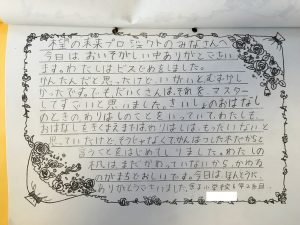 杢の未来プロジェクトのみなさんへ
今日は、おいそがしい中ありがとうござい
ます。わたしは、ビスどめをしました。
かんたんだと思ったけど、いがいとむずかし
かったです。でも、だいくさんは、それを、マスター
してすごいと思いました。さいしょのおはなし
のときの、わりばしのことをいっていて、わたしも、
おはなしをきくまえまでは、わりばしは、もったいないと
思っていたけど、そうじゃなくて、かんばつした木だからと
言うことをはじめてしりました。わたしの
机は、まだかわっていないから、かわる
のがまちどおしいです。今日は、ほんとうに、
ありがとうございました。
小学校6年2組